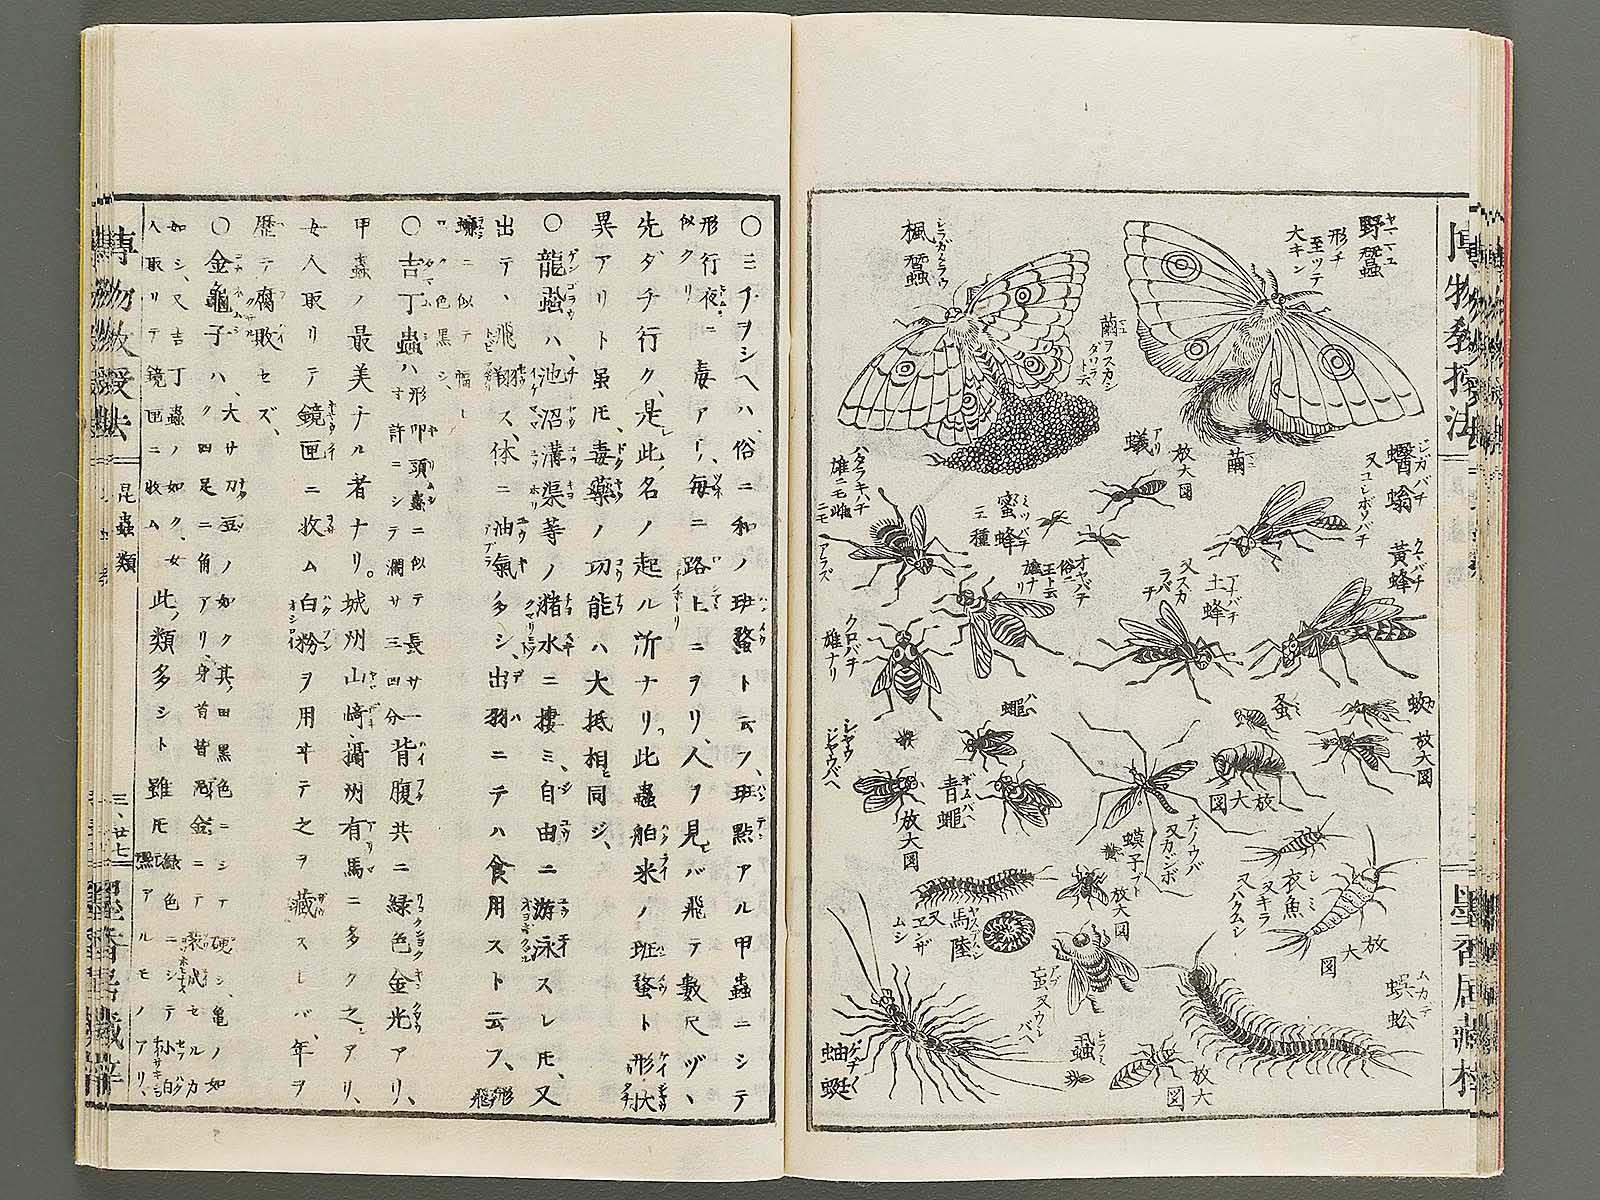 博物教授法
墨香居藏梓
ヤママユ
野蠶
形チ
至ッテ
大キシ
シラガタラウ
楓蠶
繭ヲスカシ
ダワラ
ト云
繭
アリ
蟻
放大図
ジガバチ
蠮螉
又ユレボソバチ
クマバチ
黃蜂
ミツバチ
蜜蜂
三種
ハタラキバチ
雄ニモ雌
ニモ
アラズ
オヤバチ
俗ニ
王ト云
雌ナリ
クロバチ
雄ナリ
ツチバチ
土蜂
又スカ
ラバチ
ハヘ
蠅
シヤウ
ジヤウバヘ
放大図
アヲバヘ
青蠅
蚤
放大図
蚊
放大図
又カジボ
蟆子ブト
放大図
シミ
衣魚
又キラ
又ハクムシ
放大図
ヤスデムシ
馬陸
又ヱンザ
ムシ
アブ
蝱又ウシ
バヘ
シラミ
蝨
放大図
ムカデ
蜈蚣
ゲヂゲヂ
蚰蜒
〇ミチヲシヘハ、俗ニ和ノ斑蝥ト云フ、斑點アル甲蟲ニシテ
形行夜ニ似タリ毒アリ、每ニ路上ニヲリ、人ヲ見レバ飛テ數尺ヅヽ
先ダチ行ク、是此名ノ起ル所ナリ此蟲舶來ノ斑蝥ト形狀
異アリト虽モ、毒藥ノ功能ハ大抵相同ジ、
〇龍蝨ハ、池沼溝渠等ノ瀦水ニ棲ミ、自由ニ游泳スレモ、又
出テ、飛翔ス、体ニ油氣多シ、出羽ニテハ食用スト云フ、形
〇吉丁蟲ハ形叩頭蟲ニ似テ長サ一寸許ニシテ濶サ三四分背腹共ニ綠色金光アリ、
甲蟲ノ最美ナル者ナリ。城州山﨑、攝州有馬ニ多ク之アリ、
女人取リテ鏡匣ニ收ム白粉ヲ用ヰテ之ヲ藏スレバ、年ヲ
歷テ腐敗セズ、
〇金龜子ハ、大サ刀豆ノ如ク其、甲黑色ニシテ硬シ、亀ノ如
ク四足ニ角アリ、身首皆泥金ニテ裝成セルカ
如シ、又吉丁蟲ノ如ク、女人取リテ鏡匣ニ收ム此類多シト雖モ綠色ニシテ小白
黑アルモノアリ、
博物教授法
昆蟲類
三、廿七
墨香居藏梓